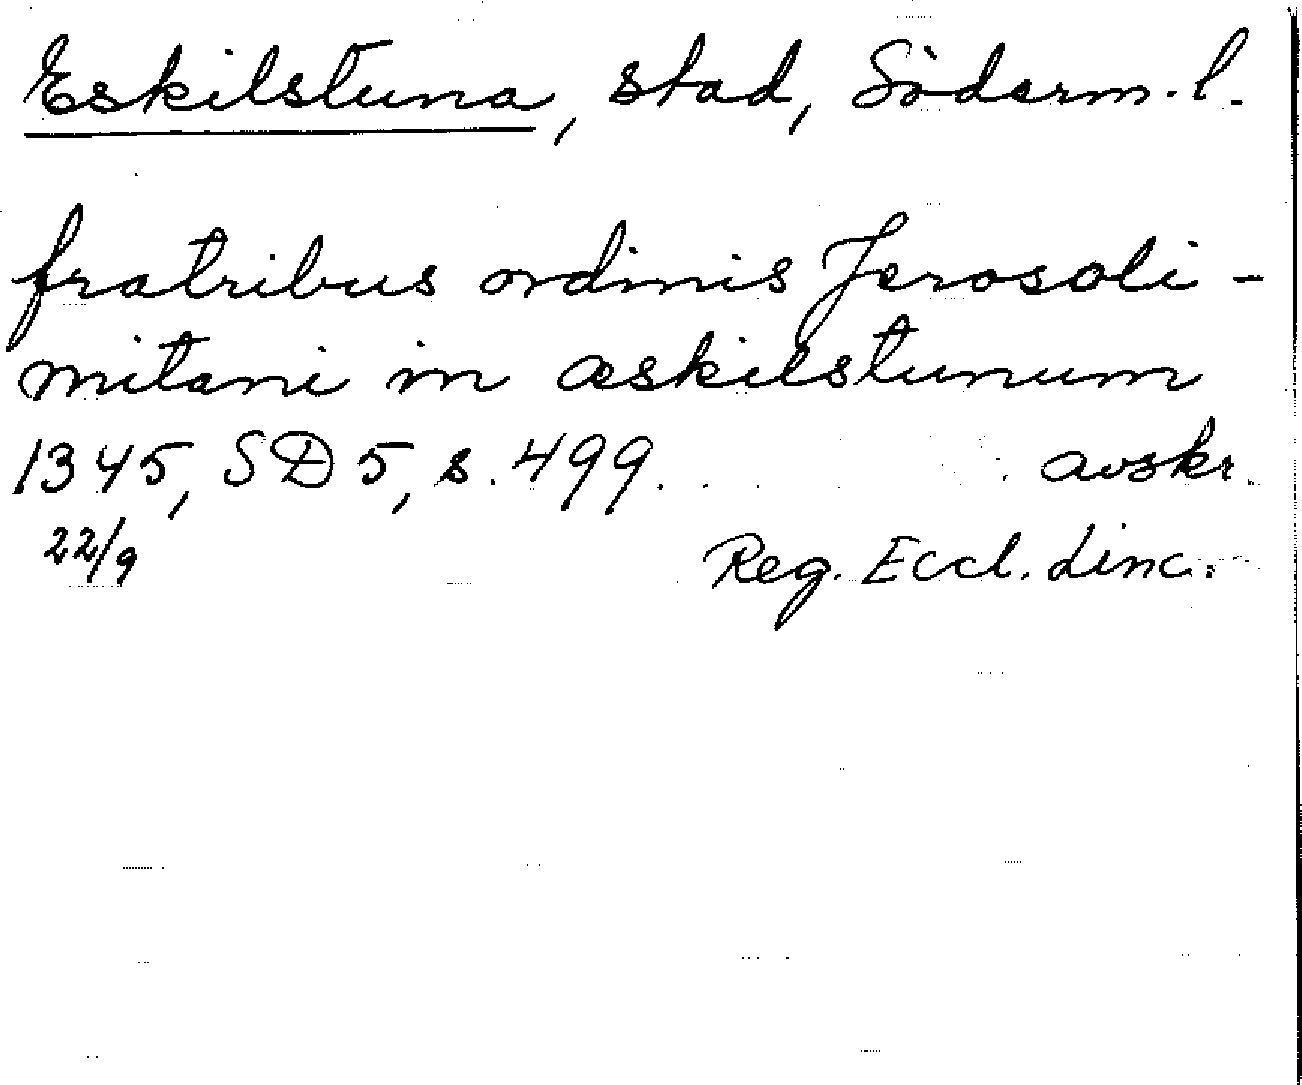 Eskilstuna, stad, Söderm. l.
fratribus ordinis Jerosoli-
mitani in æskilstunum
1345, SD 5, s. 499. avskr.
22/9 Reg. Eccl. Linc.